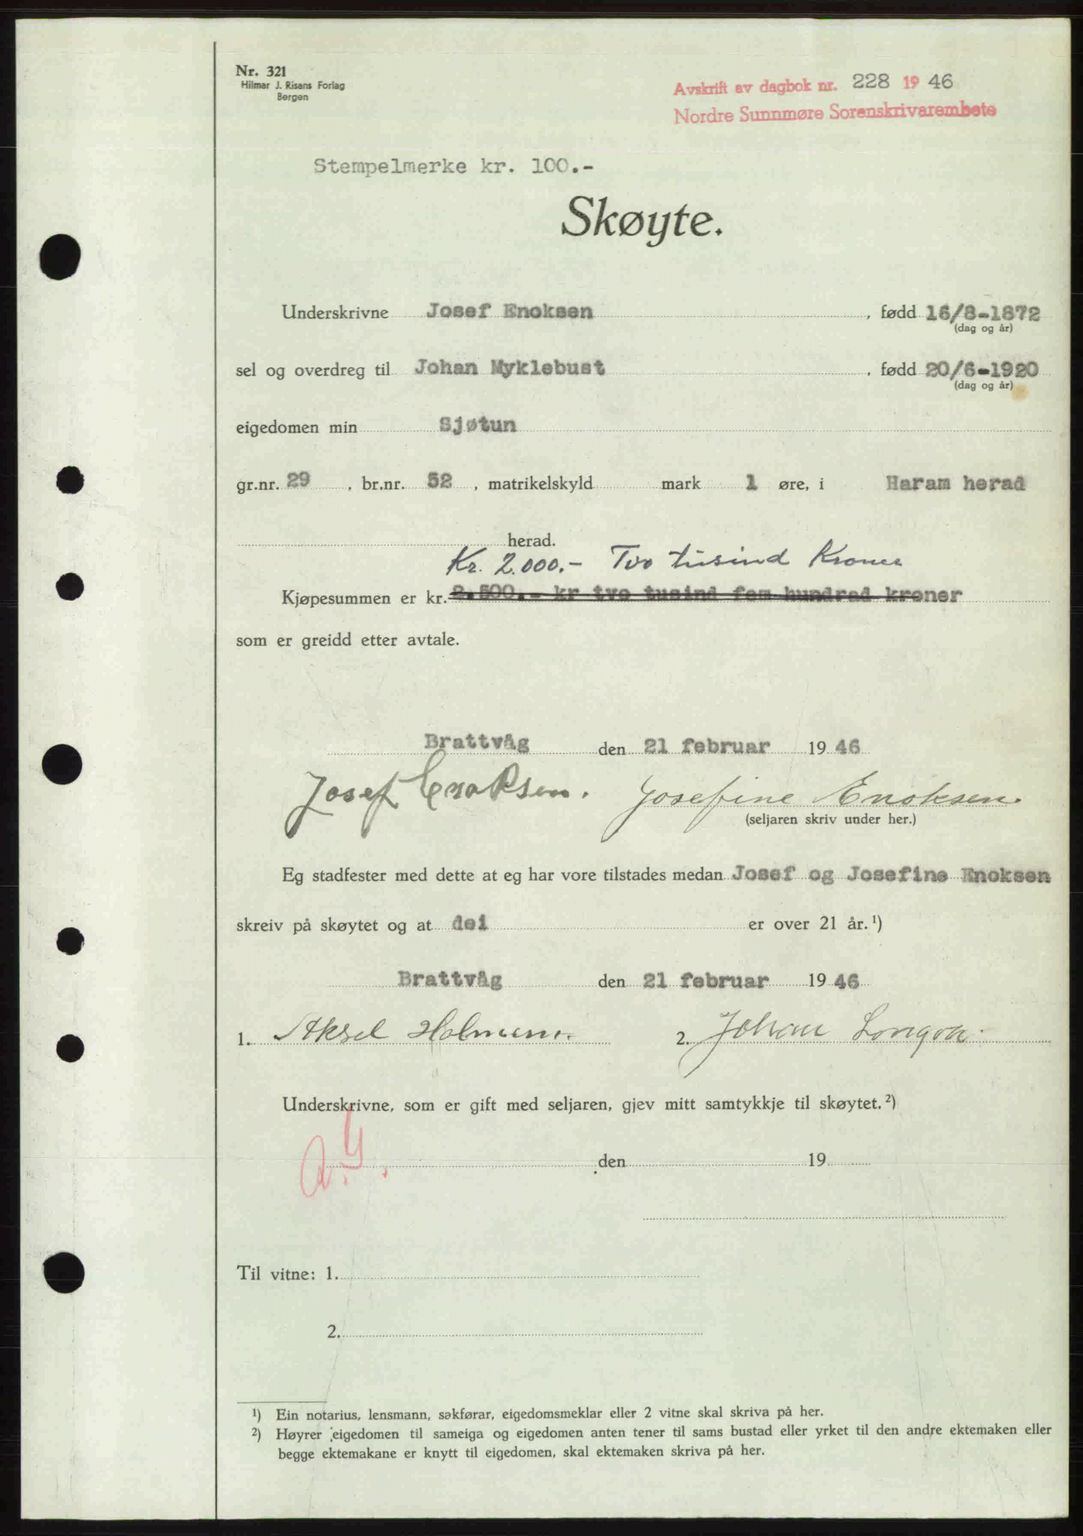 Nr. 321
Hilmar J. Risans Forlag
Bergen
Avskrift av dagbok nr. 228 1946
Nordre Sunnmøre Sorenskrivarembete
Stempelmerke kr. 100.-
Skøyte.
Underskrivne Josef Enoksen, fødd 16/8-1872
(dag og år)
sel og overdreg til Johan Myklebust, fødd 20/6-1920
(dag og år)
eigedomen min Sjøtun
gr.nr. 29, br.nr. 52, matrikelskyld mark 1 øre, i Haram herad
herad.
Kr. 2.000.- Tvo tusind Kroner
Kjøpesummen er kr. 2.500.- kr tvo tusind fem hundrad kroner
som er greidd etter avtale.
Brattvåg den 21 februar 1946
Josef Enoksen. Josefine Enoksen.
(seljaren skriv under her.)
Eg stadfester med dette at eg har vore tilstades medan Josef og Josefine Enoksen
skreiv på skøytet og at dei er over 21 år.¹)
Brattvåg den 21 februar 1946
1. Aksel Holmen. 2. Johan Longva.
Underskrivne, som er gift med seljaren, gjev mitt samtykkje til skøytet.²)
den 19
Til vitne: 1.
2.
¹) Ein notarius, lensmann, sakførar, eigedomsmeklar eller 2 vitne skal skriva på her.
²) Høyrer eigedomen til sameiga og eigedomen anten tener til sams bustad eller yrket til den andre ektemaken eller
begge ektemakane er knytt til eigedomen, skal ektemaken skriva på her.